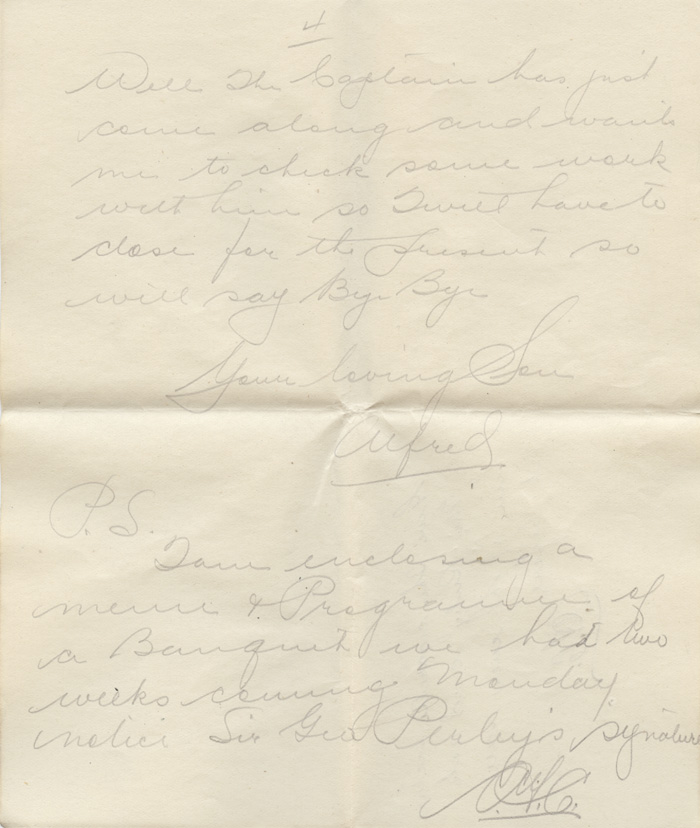 4
Well the Captain has just
come along and wants
me to check some work
with him so I will have to
close for the present so
will say Bye Bye
Your loving Son
Alfred
P.S.
I am enclosing a
menu & Programme of
a Banquet we had two
weeks coming Monday
notice Sir Geo Perley's signature